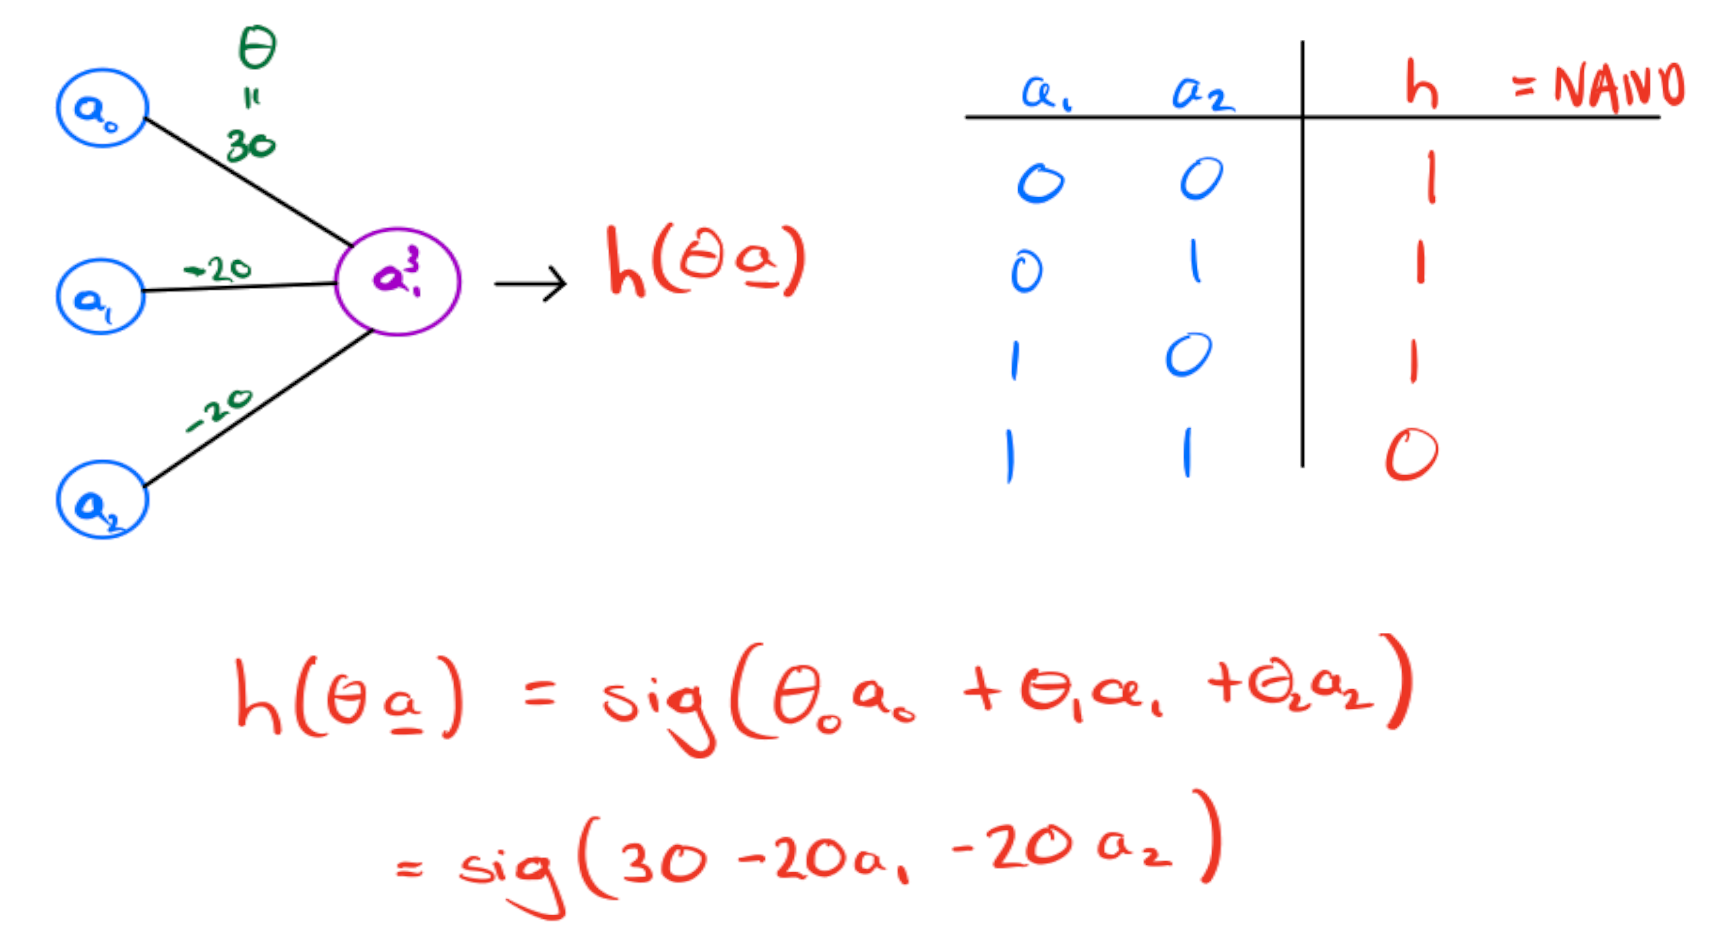 θ
=
30
a₀
-20
a₁
a₁³
→ h(θa)
-20
a₂
a₁ a₂ h = NAND
0 0 1
0 1 1
1 0 1
1 1 0
h(θa) = sig(θ₀a₀ + θ₁a₁ + θ₂a₂)
= sig(30 -20a₁ -20a₂)